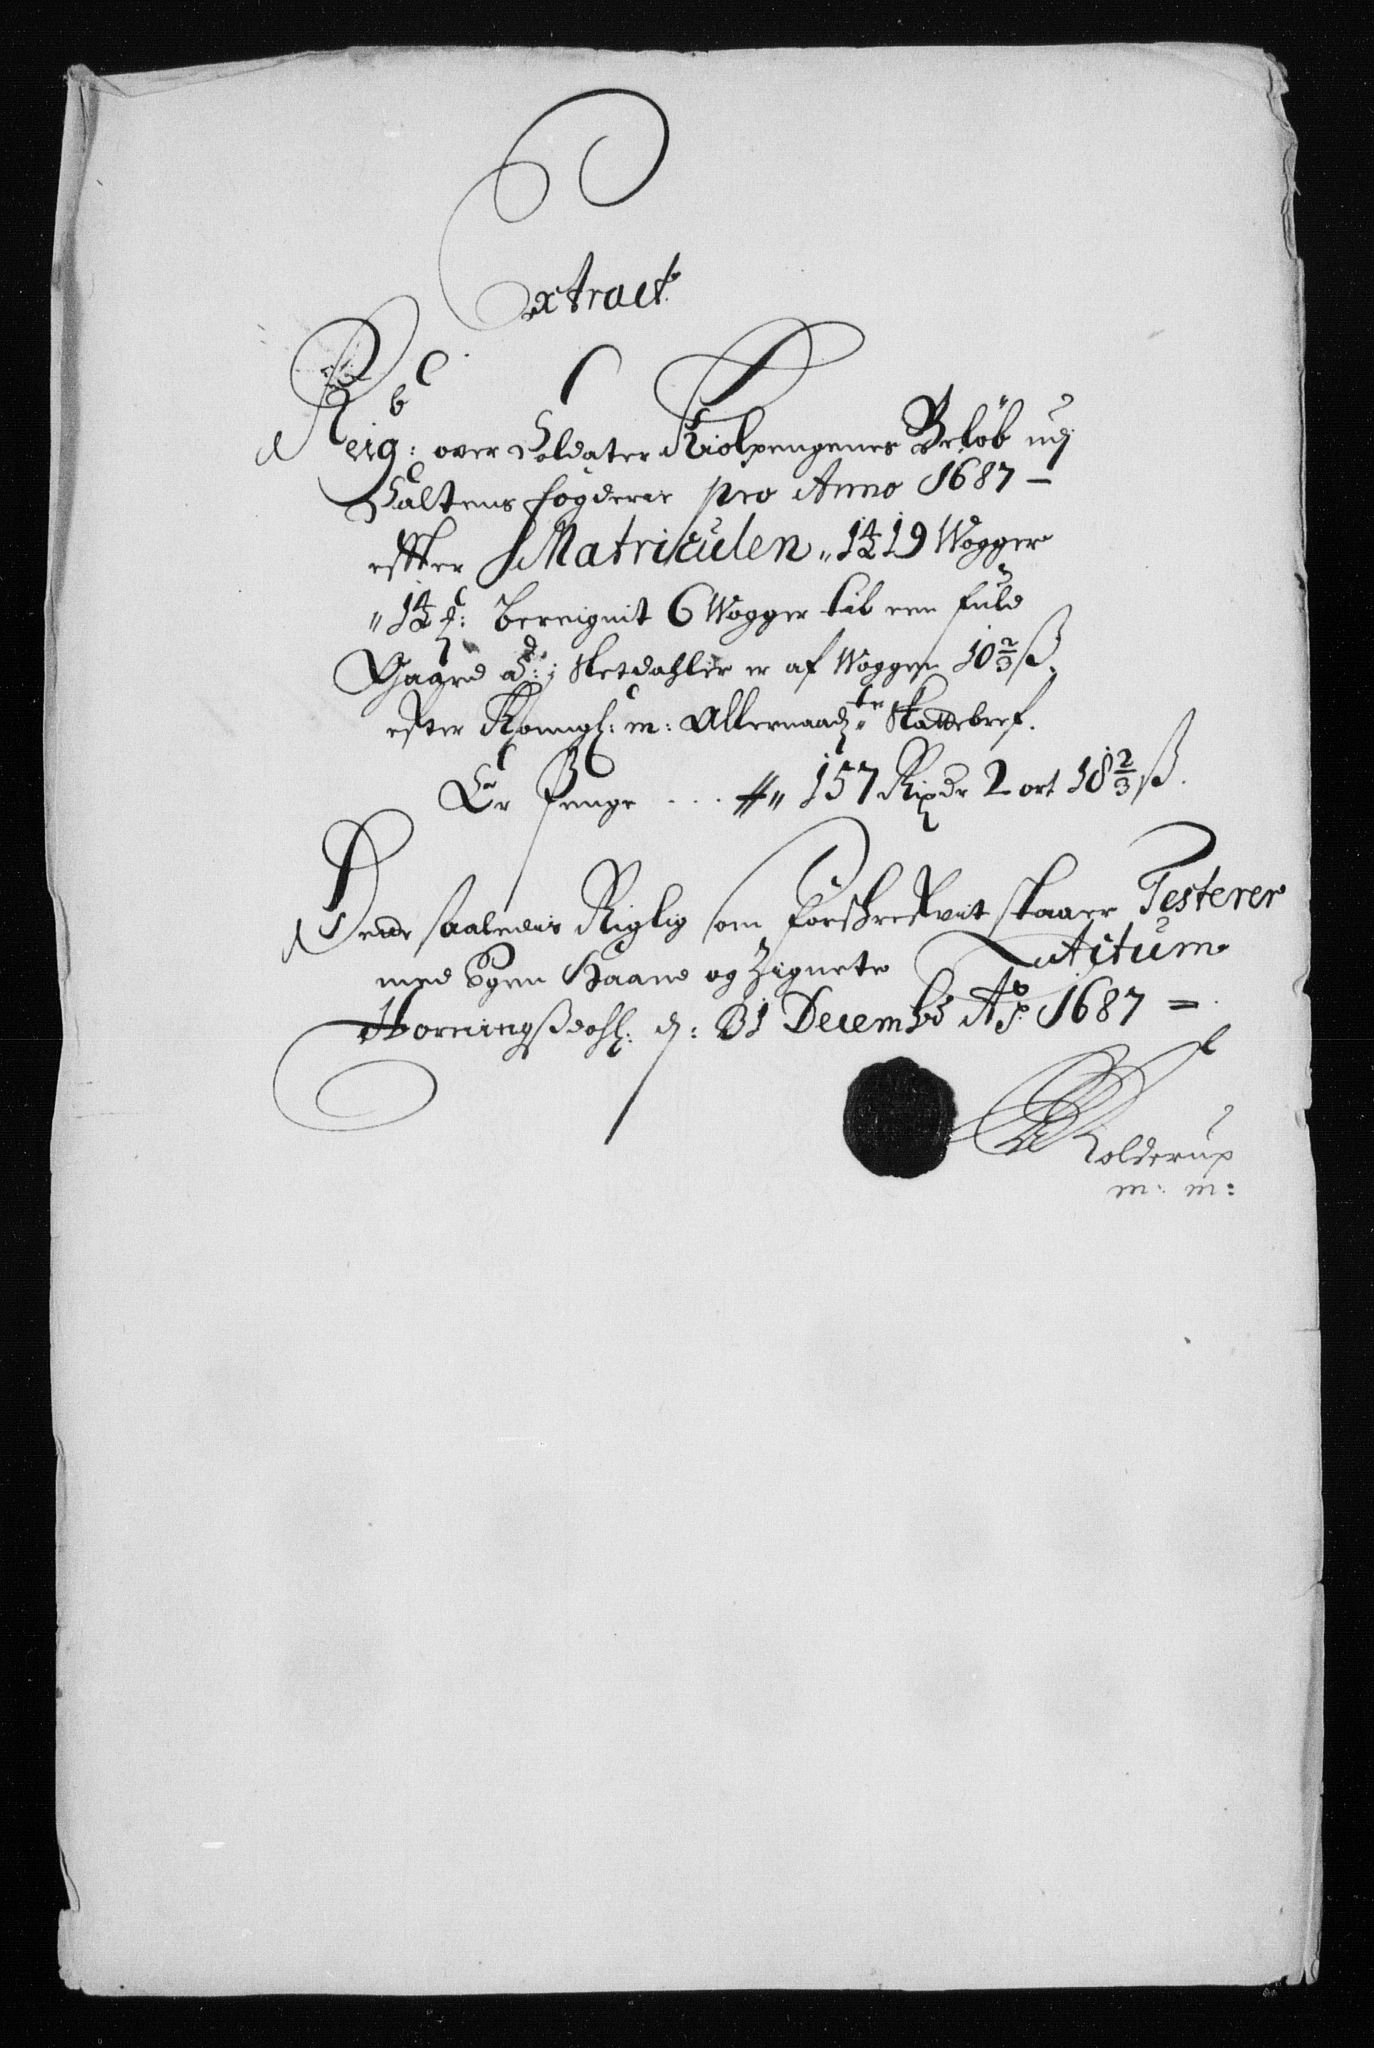 Extract
Reig: over Soldater Kiolpengenes Beløb udj
Saltens fogderie pro Anno 1687 –
effter Matriculen „ 1419 Wogger
„ 1½ : bereignit 6 Wogger till een fuld
Gaard a 1 Sletdahler er af Woggen 10⅔ ß.
efter Konngl: m: Allernaadte Skattebref.
Er Penge ... „ 157 Rixdr 2 ort 18⅔ ß.
Dette saaledis Rigtig som forschrefvit staaer Testerer
med Egen Haand og Zignete Actum
Horningßdahl: d: 31 Decembr Ao 1687 =
Kolderup
m: m: